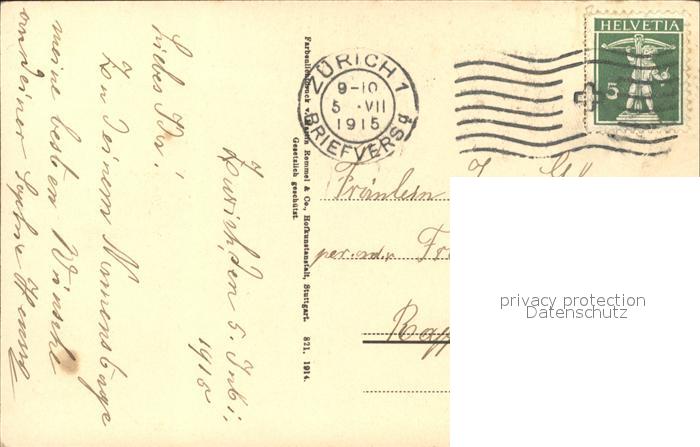 Zürich, den 5. Juli.
1915
Liebes
Zu deinem Namenstage
meine besten Wünsche
von deiner Sophie
Farbenlichtdruck v. Martin Rommel & Co., Hofkunstanstalt, Stuttgart. 821. 1914.
Gesetzlich geschützt.
ZÜRICH 1
9-10
5. VII
1915
BRIEFVERS
HELVETIA
5
Fräulein
per. adr.
privacy protection
Datenschutz